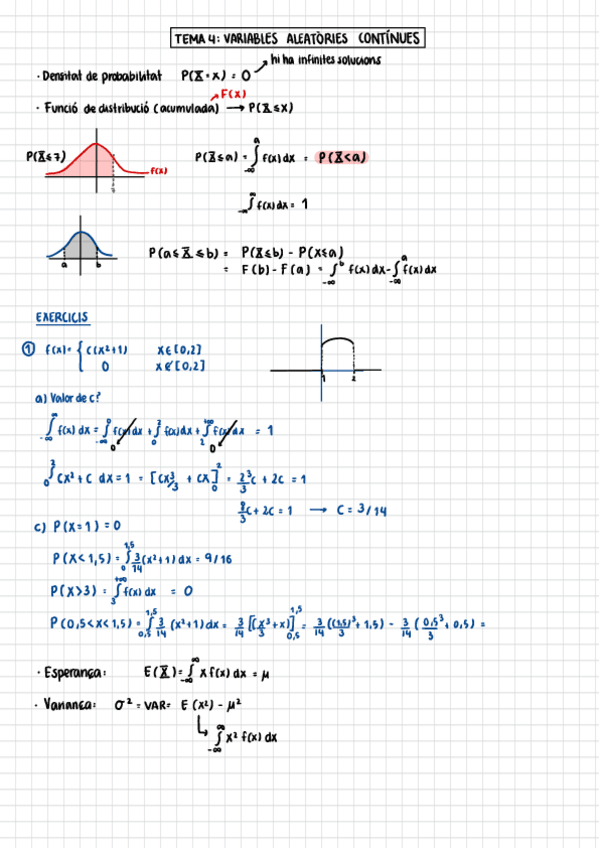 TEMA 4: VARIABLES ALEATÒRIES CONTÍNUES
hi ha infinites solucions
· Densitat de probabilitat P(X=x) = 0
F(x)
· Funció de distribució (acumulada) → P(X≤x)
P(X≤7) f(x)
P(X≤a) = ∫_{-∞}^{a} f(x) dx = P(X<a)
∫_{-∞}^{∞} f(x) dx = 1
a b
P(a≤X≤b) = P(X≤b) - P(X≤a)
= F(b) - F(a) = ∫_{-∞}^{b} f(x) dx - ∫_{-∞}^{a} f(x) dx
EXERCICIS
① f(x) = { c(x²+1) x∈[0,2]
0 x∉[0,2]
1 2
a) Valor de c?
∫_{-∞}^{∞} f(x) dx = ∫_{-∞}^{0} f(x) dx + ∫_{0}^{2} f(x) dx + ∫_{2}^{+∞} f(x) dx = 1
0 0
∫_{0}^{2} cx² + c dx = 1 = [cx³/3 + cx]_{0}^{2} = 2³/3 c + 2c = 1
8/3 c + 2c = 1 → c = 3/14
c) P(x=1) = 0
P(X<1,5) = ∫_{0}^{1,5} 3/14 (x²+1) dx = 9/16
P(X>3) = ∫_{3}^{+∞} f(x) dx = 0
P(0,5<x<1,5) = ∫_{0,5}^{1,5} 3/14 (x²+1) dx = 3/14 [(x³/3 + x)]_{0,5}^{1,5} = 3/14 ((1,5)³/3 + 1,5) - 3/14 (0,5³/3 + 0,5) =
· Esperança: E(X) = ∫_{-∞}^{∞} x f(x) dx = μ
· Variança: σ² = VAR = E(x²) - μ²
∫_{-∞}^{∞} x² f(x) dx